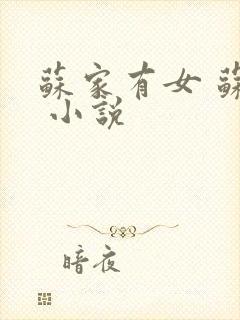 蘇家有女 蘇
小説
暗夜